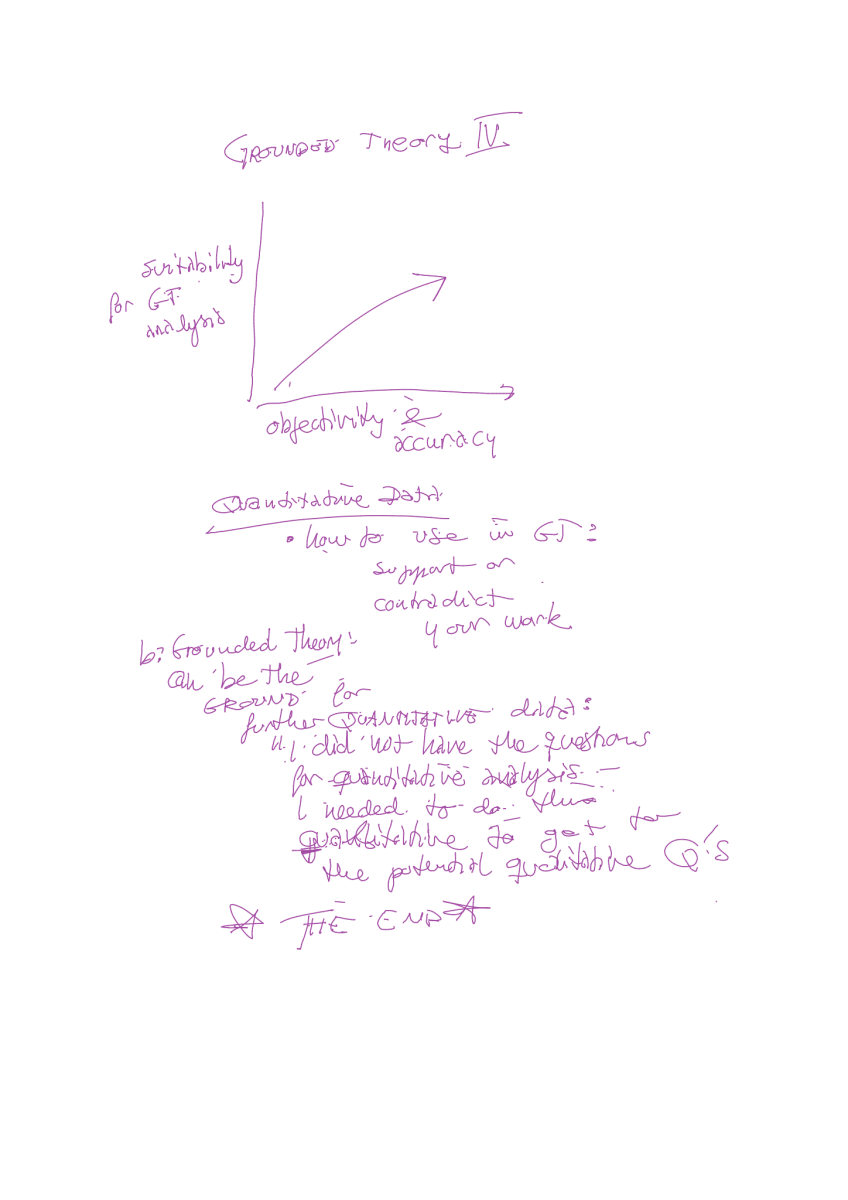 GROUNDED Theory IV.
suitability
for GT
analysis
objectivity &
accuracy
Quantitative Data
• how to use in GT:
support or
contradict
your work
b: Grounded Theory:
Can be the
GROUND for
further QUANTITATIVE data:
"I did not have the questions
for quantitative analysis -
I needed to do this
qualitative to get to
the potential qualitative Q's
THE END